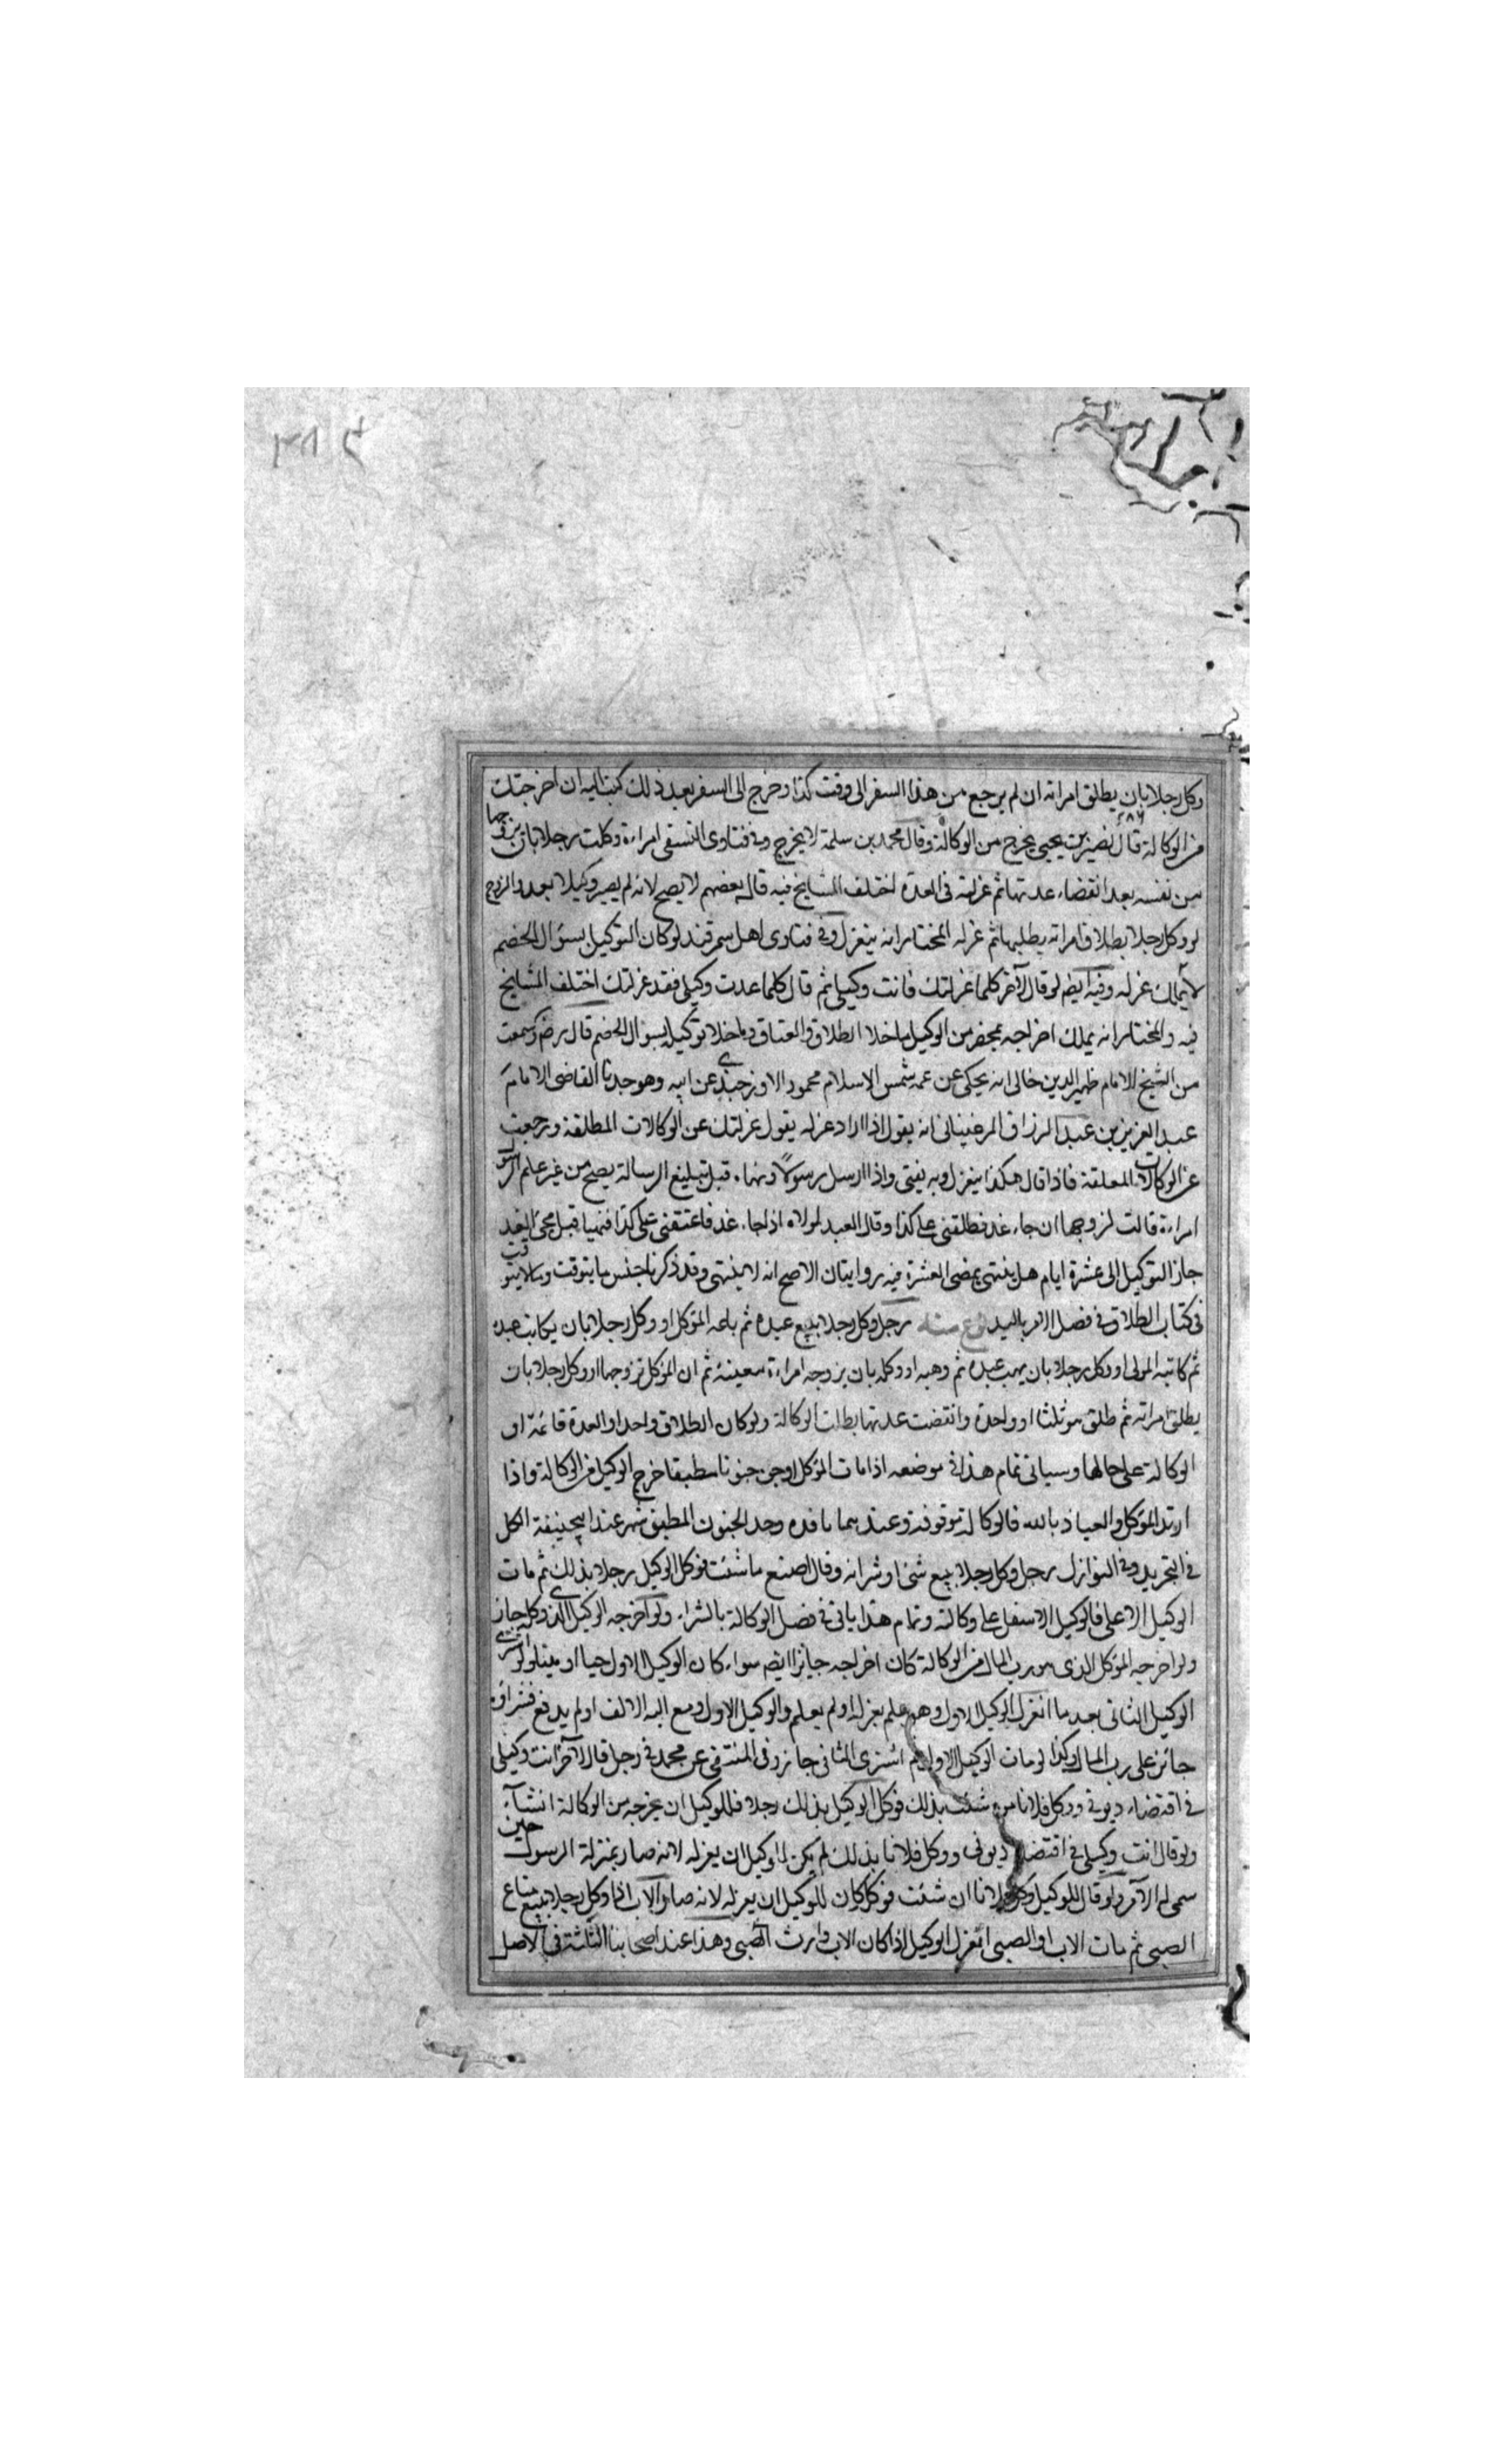 وكل رجلا بان يطلق امراته ان لم يرجع من هذا السفر الى وقت كذا وخرج الى السفر بعد ذلك كتب اليه ان اخرجتك
من الوكالة قال نصير بن يحيى يخرج من الوكالة وقال محمد بن سلمة لا يخرج وفي فتاوى النسفي امراءة وكلت رجلا بان يزوجها
من نفسه بعد انقضاء عدتها ثم عزلته في العدة اختلف المشايخ فيه قال بعضهم لا يصح لانه لم يصير وكيلا بعد والزوج
لو وكل رجلا بطلاق امراته بطلبها ثم عزله المختار انه ينعزل وفي فتاوى اهل سمرقند لو كان التوكيل بسؤال الخصم
لا يملك عزله وفيه ايضم لو قال لآخر كلما عزلتك فانت وكيلي ثم قال كلما عدت وكيلي فقد عزلتك اختلف المشايخ
فيه والمختار انه يملك اخراجه بمحضر من الوكيل ما خلا الطلاق والعتاق وما خلا توكيله بسؤال الخصم قال رض وسمعت
من الشيخ الامام ظهير الدين خالي انه يحكي عن عمه شمس الاسلام محمود الاوزجندي عن ابيه وهو جدنا القاضي الامام
عبد العزيز بن عبد الرزاق المرغيناني انه يقول اذا اراد عزله يقول عزلتك عن الوكالات المطلقة ورجعت
عن الوكالات المعلقة فاذا قال هكذا ينعزل وبه يفتى واذا ارسل رسولا قبل تبليغ الرسالة يصح من غير علم الرسول
امراءة قالت لزوجها ان جاء غد فطلقني على كذا وقال العبد لمولاه اذا جاء غد فاعتقني على كذا فنهيا قبل مجئ الغد
جاز التوكيل الى عشرة ايام هل ينتهي بمضي العشرة فيه روايتان الاصح انه لا ينتهي وقد ذكرنا جنس ما يتوقت وما لا يتوقت
في كتاب الطلاق في فصل الامر باليد نوع منه رجل وكل رجلا ببيع عبده ثم باعه الموكل او وكل رجلا بان يكاتب عبده
ثم كاتبه المولى او وكل رجلا بان يهب عبده ثم وهبه او وكله بان يزوجه امراءة معينة ثم ان الموكل تزوجها او وكل رجلا بان
يطلق امراته ثم طلق هو ثلثا او واحدة وانقضت عدتها بطلت الوكالة ولو كان الطلاق واحدا والعدة قائمة او
الوكالة على حالها وسياتي تمام هذا في موضعه اذا مات الموكل او جن جنونا مطبقا خرج الوكيل من الوكالة واذا
ارتد الموكل والعياذ بالله فالوكالة موقوفة وعندهما نافذه وحد الجنون المطبق شهر عند ابيحنيفة الكل
في التجريد وفي النوازل رجل وكل رجلا ببيع شئ او شرائه وقال اصنع ما شئت فوكل الوكيل رجلا بذلك ثم مات
الوكيل الاعلى فالوكيل الاسفل على وكالته وتمام هذا ياتي في فصل الوكالة بالشراء ولو اخرجه الوكيل الذي وكله جاز
ولو اخرجه الموكل الذي هو رب المال من الوكالة كان اخراجه جائزا ايضم سواء كان الوكيل الاول حيا او ميتا ولو اشترى
الوكيل الثاني بعد ما انعزل الوكيل الاول وهو علم بعزله او لم يعلم والوكيل الاول دفع اليه الالف او لم يدفع فشراؤه
جائز على رب المال وكذا لو مات الوكيل الاول ثم اشترى الثاني جاز وفي المنتقى عن محمد في رجل قال لآخر انت وكيلي
في اقتضاء ديوني ووكل فلانا من شئت بذلك فوكل الوكيل بذلك رجلا فللوكيل ان يخرجه من الوكالة ان شاء
ولو قال انت وكيلي في اقتضاء ديوني ووكل فلانا بذلك لم يكن للوكيل ان يعزله لانه صار بمنزلة الرسول حين
سمى له الآمر ولو قال للوكيل وكل فلانا ان شئت فوكل كان للوكيل ان يعزله لانه صار الاب اذا وكل رجلا ببيع متاع
الصبي ثم مات الاب او الصبي انعزل الوكيل اذا كان الاب وارث الصبي وهذا عند اصحابنا الثلثة في الاصل